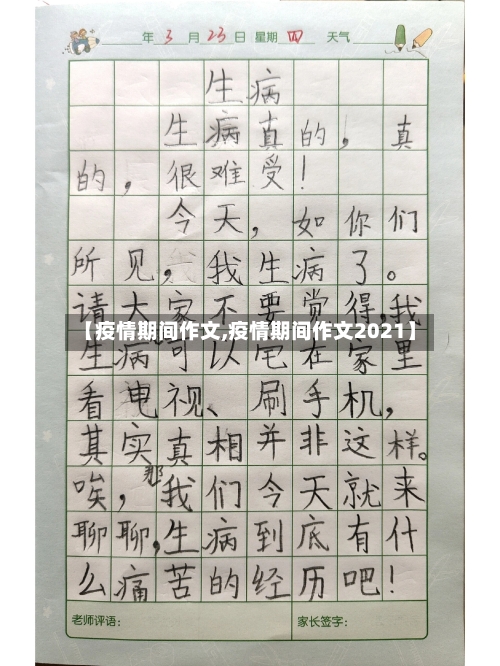 年 3 月 23 日 星期 四 天气
生病
生病真的，真
的，很难受！
今天，如你们
所见，我生病了。
请大家不要觉得，我
【疫情期间作文,疫情期间作文2021】
生病可以宅在家里
看电视、刷手机，
其实真相并非这样。
唉，那我们今天就来
聊聊，生病到底有什
么痛苦的经历吧！
老师评语： 家长签字：